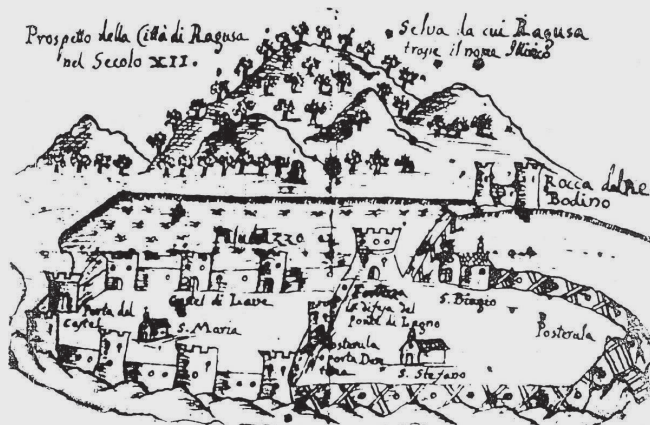 Prospetto della Città di Ragusa
nel Secolo XII.
Selva da cui Ragusa
trasse il nome Illirico
Rocca del Re
Bodino
Castel di Lave
Porta del
Castel
S. Maria
Fortezza
la difesa del
Ponte di Legno
S. Biagio
Posterula
Posterula
porta
S. Stefano